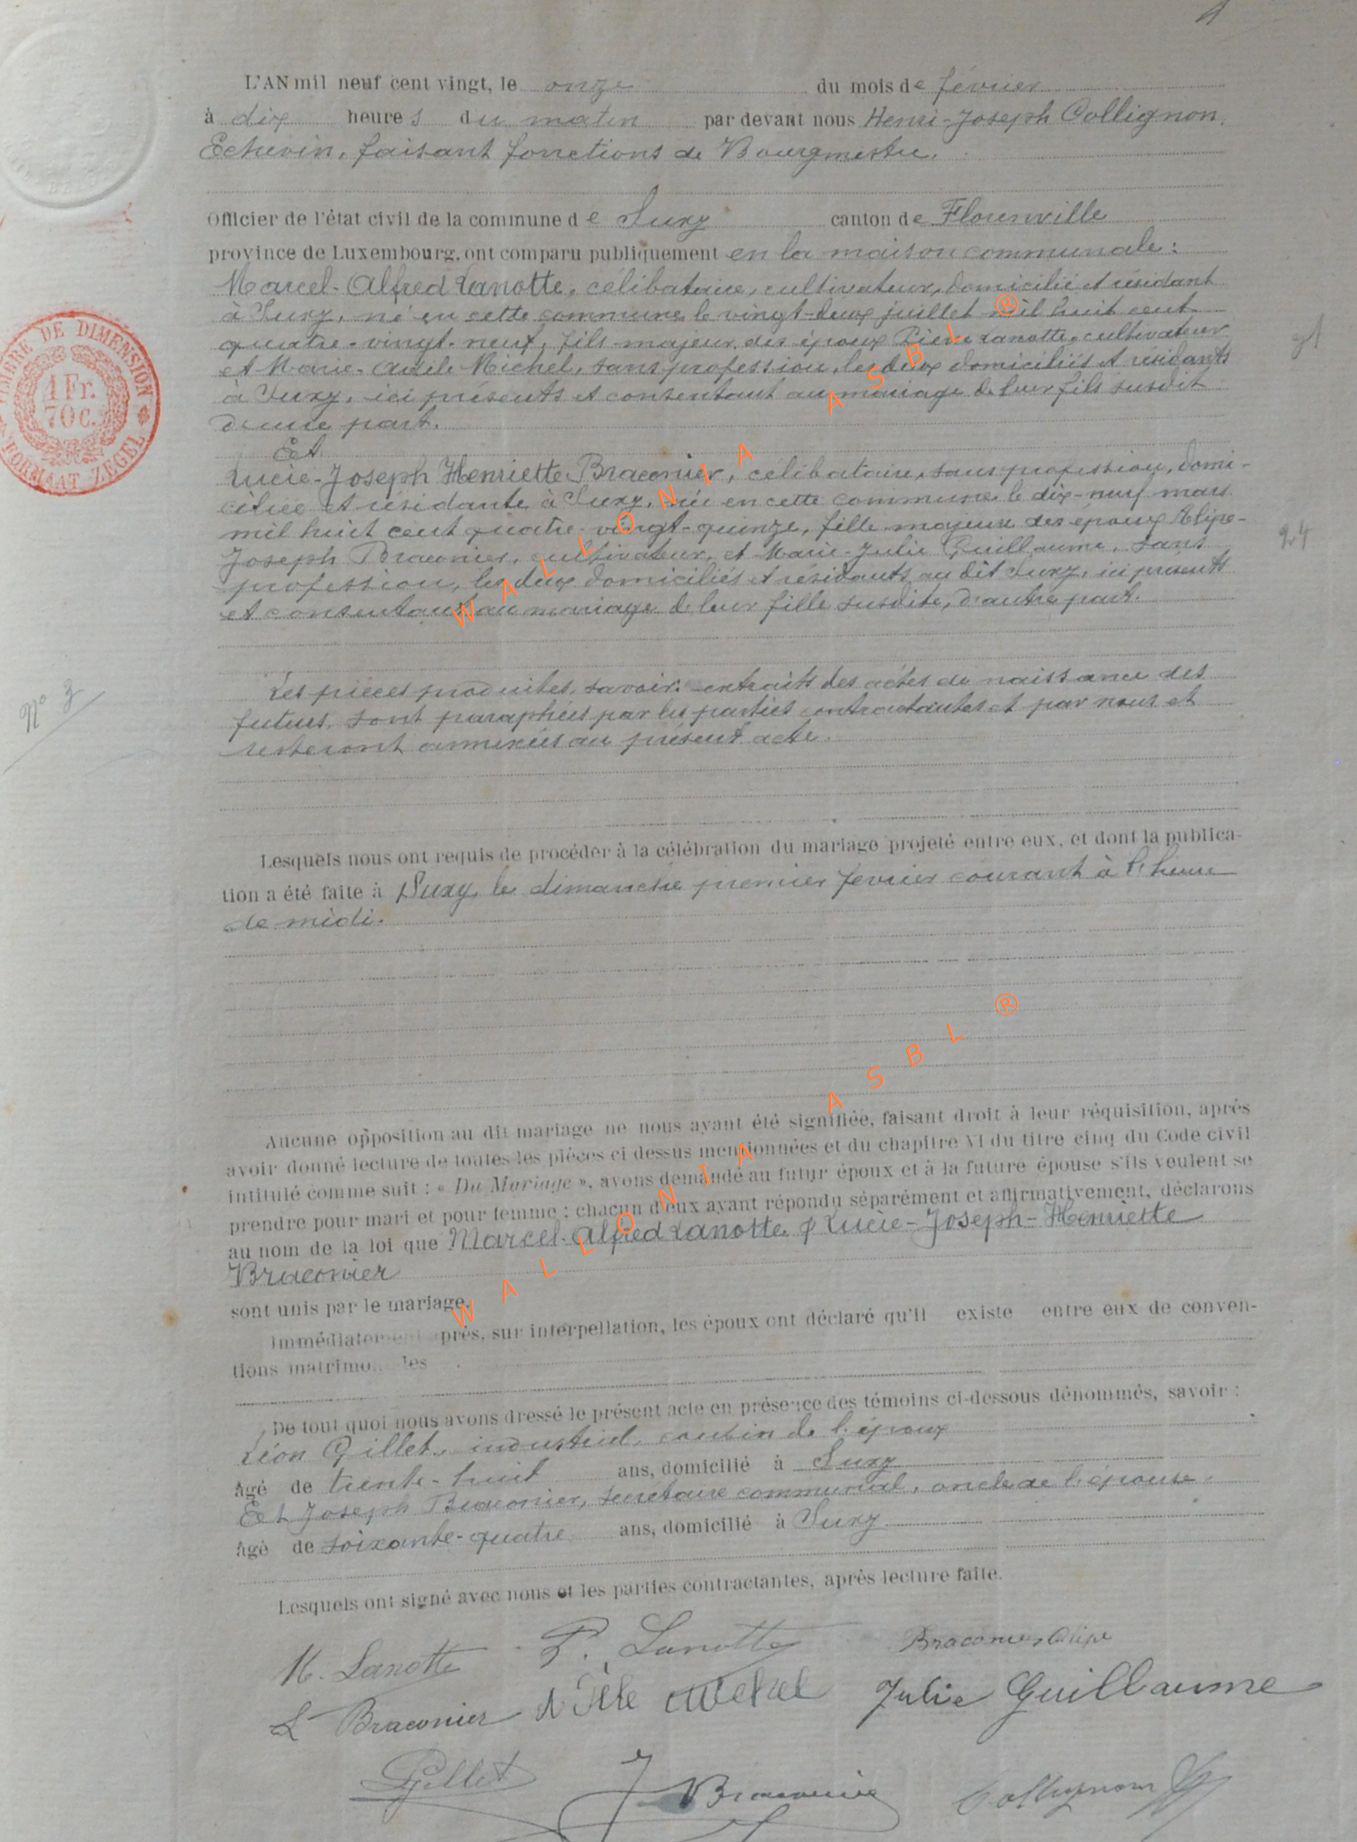 L'AN mil neuf cent vingt, le onze du mois de février
à dix heures du matin par devant nous Henri-Joseph Collignon,
Echevin, faisant fonctions de Bourgmestre,
Officier de l'état civil de la commune de Suxy canton de Florenville
province de Luxembourg, ont comparu publiquement en la maison communale :
Marcel-Alfred Lanotte, célibataire, cultivateur, domicilié et résidant
à Suxy, né en cette commune le vingt-deux juillet mil huit cent
quatre-vingt-neuf, fils majeur des époux Pierre Lanotte, cultivateur
et Marie-Adèle Michel, sans profession, les deux domiciliés et résidants
à Suxy, ici présents et consentant au mariage de leur fils susdit
d'une part.
Et
Lucie-Joseph Henriette Braconier, célibataire, sans profession, domi-
ciliée et résidante à Suxy, née en cette commune le dix-neuf mars
mil huit cent quatre-vingt-quinze, fille majeure des époux Alipe-
Joseph Braconier, cultivateur, et Marie-Julie Guillaume, sans
profession, les deux domiciliés et résidants au dit Suxy, ici présents
et consentant au mariage de leur fille susdite, d'autre part.
N° 3
Les pièces produites, savoir: extraits des actes de naissance des
futurs, sont paraphées par les parties contractantes et par nous et
resteront annexées au présent acte.
Lesquels nous ont requis de procéder à la célébration du mariage projeté entre eux, et dont la publica-
tion a été faite à Suxy, le dimanche premier février courant à l'heure
de midi.
Aucune opposition au dit mariage ne nous ayant été signifiée, faisant droit à leur réquisition, après
avoir donné lecture de toutes les pièces ci dessus mentionnées et du chapitre VI du titre cinq du Code civil
intitulé comme suit : « Du Mariage », avons demandé au futur époux et à la future épouse s'ils veulent se
prendre pour mari et pour femme : chacun d'eux ayant répondu séparément et affirmativement, déclarons
au nom de la loi que Marcel-Alfred Lanotte & Lucie-Joseph-Henriette
Braconier
sont unis par le mariage.
Immédiatement après, sur interpellation, les époux ont déclaré qu'il existe entre eux de conven-
tions matrimoniales
De tout quoi nous avons dressé le présent acte en présence des témoins ci-dessous dénommés, savoir :
Léon Gillet, industriel, cousin de l'époux
âgé de trente-huit ans, domicilié à Suxy
Et Joseph Braconier, secrétaire communal, oncle de l'épouse,
âgé de soixante-quatre ans, domicilié à Suxy
Lesquels ont signé avec nous et les parties contractantes, après lecture faite.
M. Lanotte P. Lanotte Braconier Alipe
L Braconier Adèle Michel Julie Guillaume
Gillet J Braconier Collignon
TIMBRE DE DIMENSION
1 Fr.
70 C.
FORMAAT ZEGEL
24
WALLONIA ASBL ®
WALLONIA ASBL ®